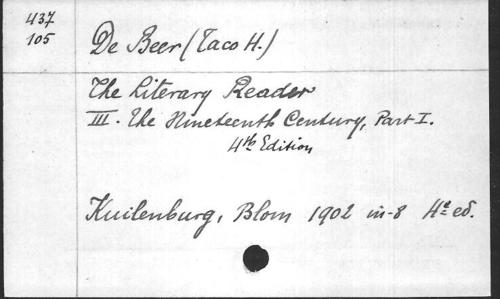 437
105
De Beer (Taco H.)
The Literary Reader
III. The Nineteenth Century, Part I.
4th Edition
Kuilenburg, Blom 1902 in-8 4e ed.